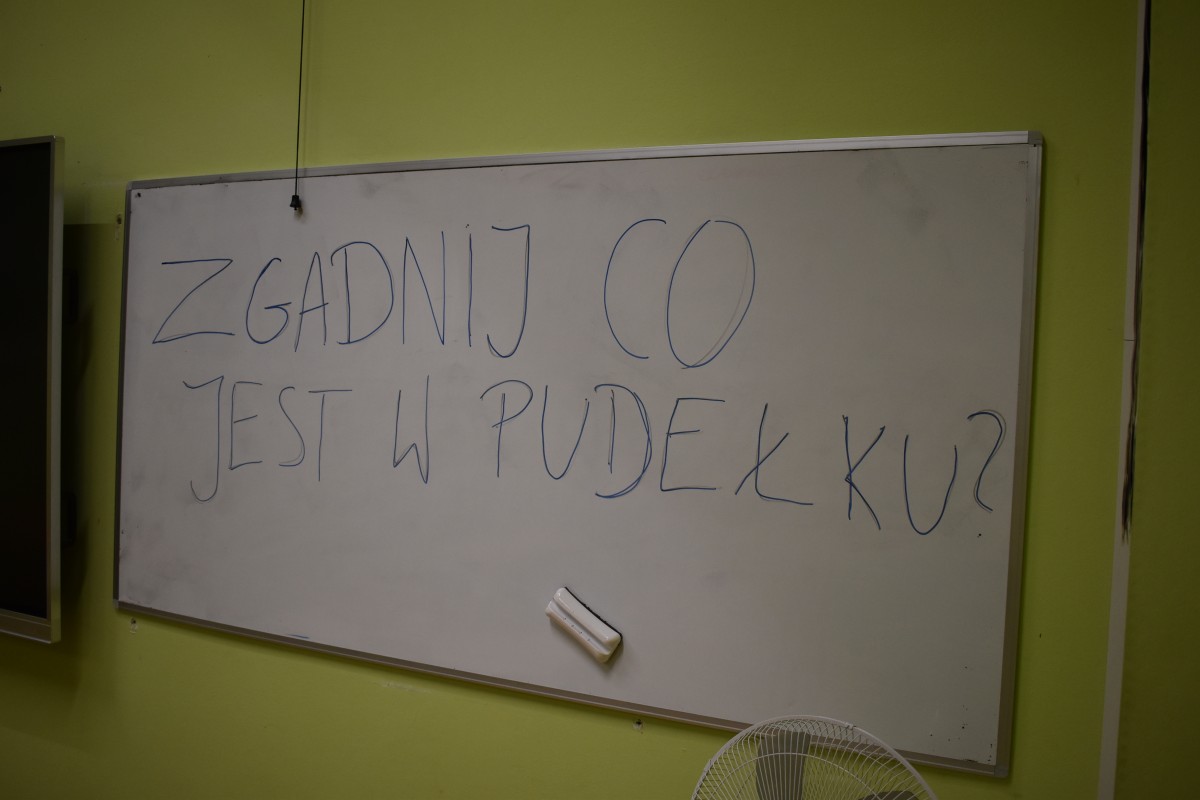 ZGADNIJ CO
JEST W PUDEŁKU?